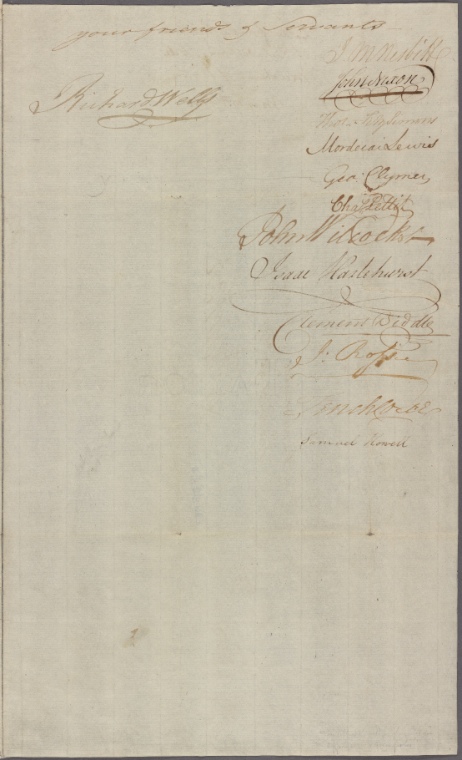 your friends & Servants
J. M Nesbitt
John Nixon
Richard Wells
Tho: Fitzsimons
Mordecai Lewis
Geo: Clymer
Cha. Pettit
John Wilcocks
Isaac Hazlehurst
Clement Biddle
J: Ross
Samuel Howell